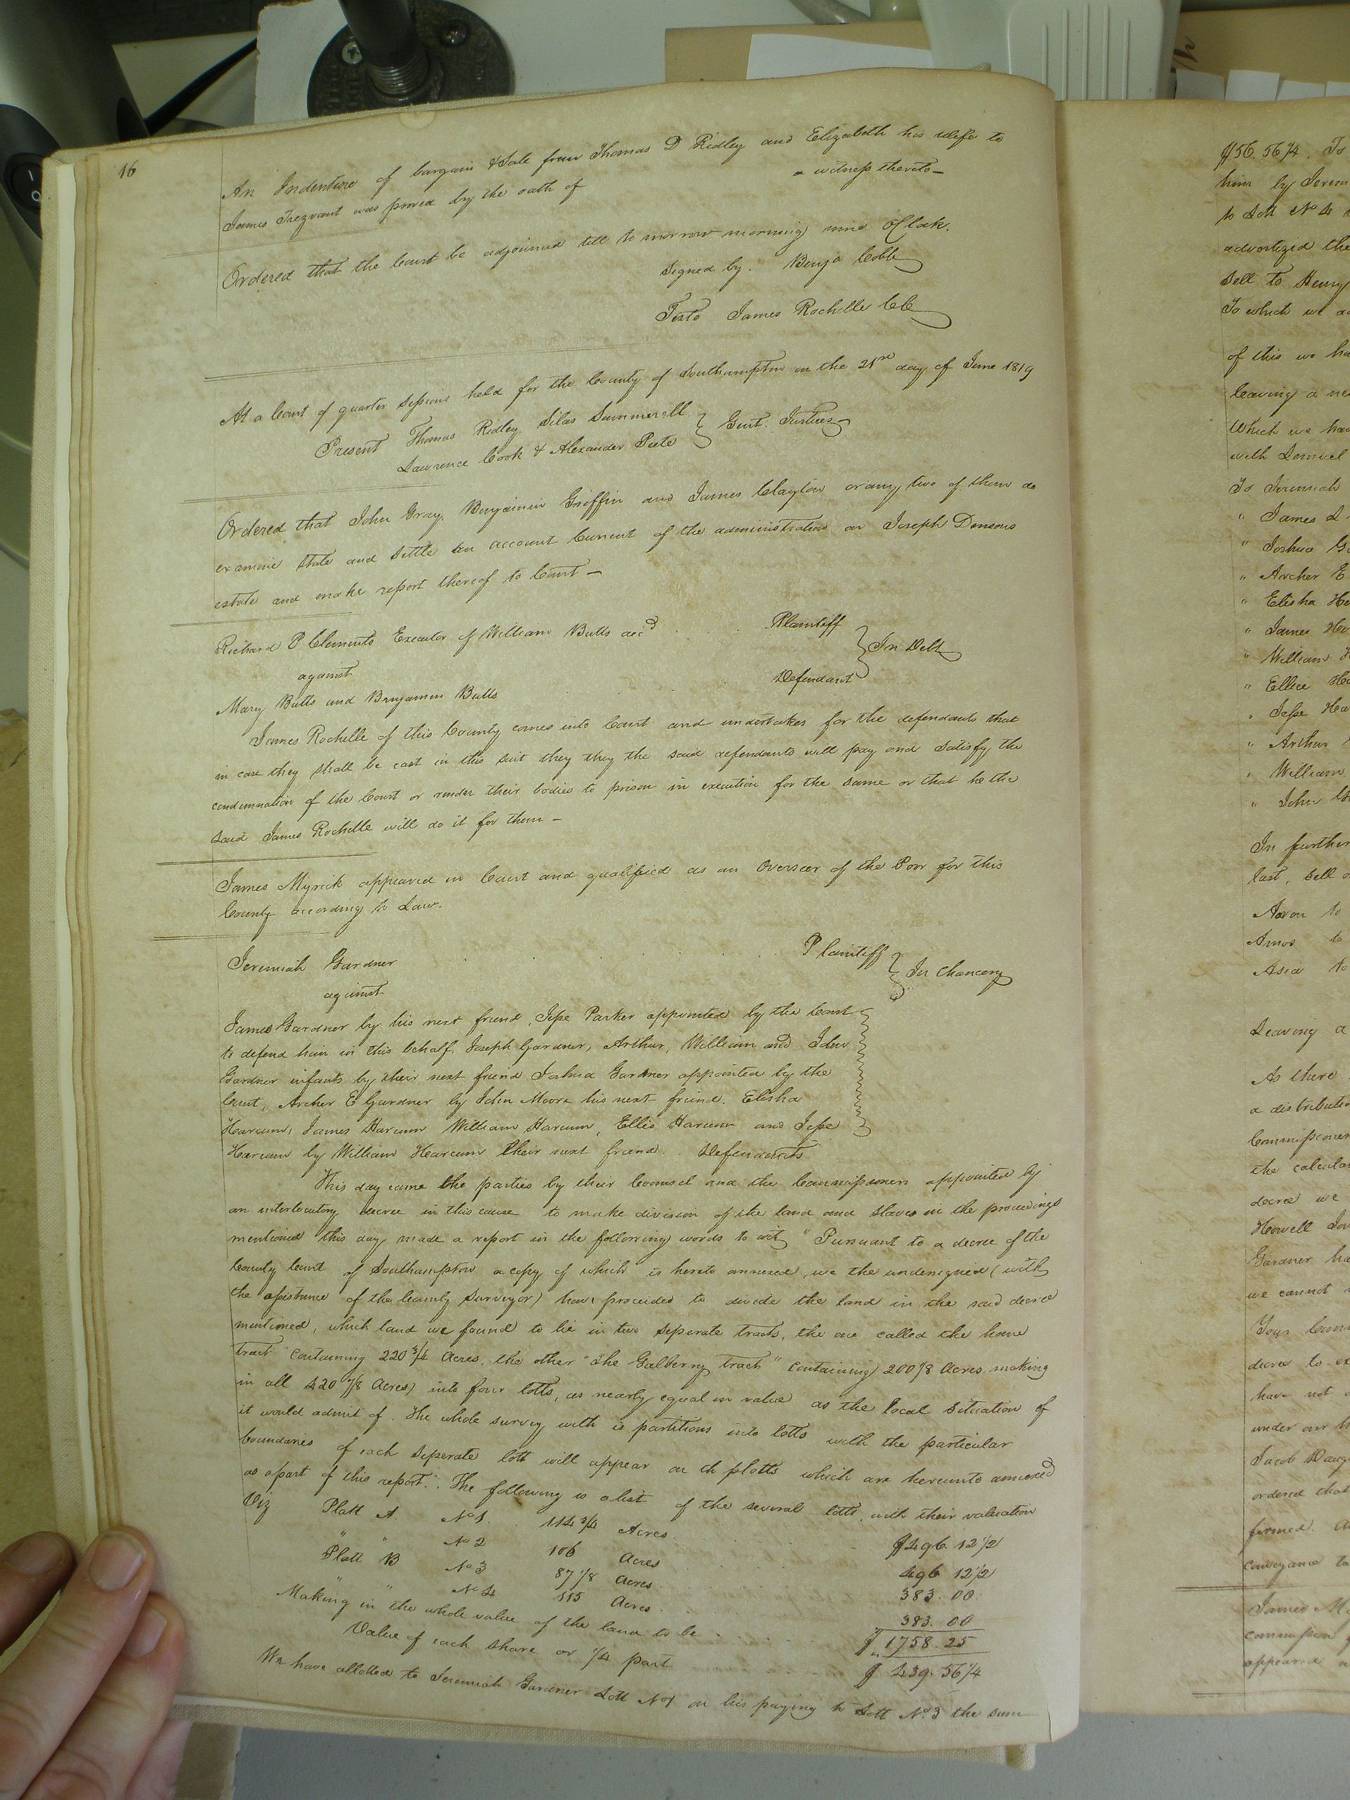 16
An Indenture of bargain & Sale from Thomas D Ridley and Elizabeth his wife to
James Trezvant was proved by the oath of a witness thereto—
Ordered that the Court be adjourned till to morrow morning nine OClock.
Signed by. Benja Cobb
Teste James Rochelle CC
At a Court of quarter Sessions held for the County of Southampton on the 21st day of June 1819
Present Thomas Ridley Silas Summerell
Lawrence Cook & Alexander Peete } Gent. Justices
Ordered that John Gray, Benjamin Griffin and James Clayton or any two of them do
examine state and settle an account Current of the administration on Joseph Densons
estate and make report thereof to Court—
Richard P Clements Executor of William Butts decd Plaintiff
against } In Debt
Mary Butts and Benjamin Butts Defendant
James Rochelle of this County comes into Court and undertakes for the defendants that
in case they shall be cast in this suit they they the said defendants will pay and satisfy the
condemnation of the Court or render their bodies to prison in execution for the same or that he the
said James Rochelle will do it for them—
James Myrick appeared in Court and qualified as an Overseer of the Poor for this
County according to Law.
Jeremiah Gardner Plaintiff
against } In Chancery
James Gardner by his next friend, Jesse Parker appointed by the Court
to defend him in this behalf, Joseph Gardner, Arthur, William and John
Gardner infants by their next friend Joshua Gardner appointed by the
Court, Archer E Gardner by John Moore his next friend. Elisha
Harcum, James Harcum William Harcum, Ellis Harcum and Jesse
Harcum by William Harcum their next friend. Defendants
This day came the parties by their Counsel and the Commissioners appointed by
an interlocutory decree in this cause to make division of the land and slaves in the proceedings
mentioned this day made a report in the following words to wit, "Pursuant to a decree of the
County Court of Southampton a copy of which is hereto annexed, we the undersigned (with
the assistance of the County Surveyor) have proceeded to divide the land in the said decree
mentioned, which land we found to lie in two seperate tracts, the one called the home
tract containing 220 3/4 Acres, the other "The Galberry tract" containing 200 1/8 Acres making
in all 420 7/8 Acres) into four lotts, as nearly equal in value as the local situation of
it would admit of. The whole survey with is partitions into lotts with the particular
boundaries of each seperate lott will appear on ch plotts which are hereunto annexed
as a part of this report. The following is a list of the several lotts, with their valuation
Viz Platt A No 1. 114 3/4 Acres $496. 12 1/2
" " No 2 106 Acres 496 12 1/2
Platt B No 3 87 1/8 Acres 383. 00
" " No 4 113 Acres. 383. 00
Making in the whole value of the land to be $ 1758. 25
Value of each share or 1/4 part $ 439. 56 1/4
We have allotted to Jeremiah Gardner Lott No 1 on his paying to Lott No 3 the sum
$56. 56 1/4. To
him by Jerem
to Lott No 4
advertized the
Sell to Henry
To which we
of this we ha
leaving a ne
Which we ha
with Lemuel
To Jeremiah
" James
" Joshua G
" Archer E
" Elisha Ha
" James Har
" William H
" Ellice Ha
" Jesse Ha
" Arthur
" William
" John
In further
last, sell
Aaron to
Amos to
Asia to
Leaving a
As there
a distributi
Commissioners
the calcula
decree we
Howell
Gardner ha
we cannot
Your
decree to
have not
under our
Jacob
ordered that
firmed.
conveyance to
James M
commission
appeared